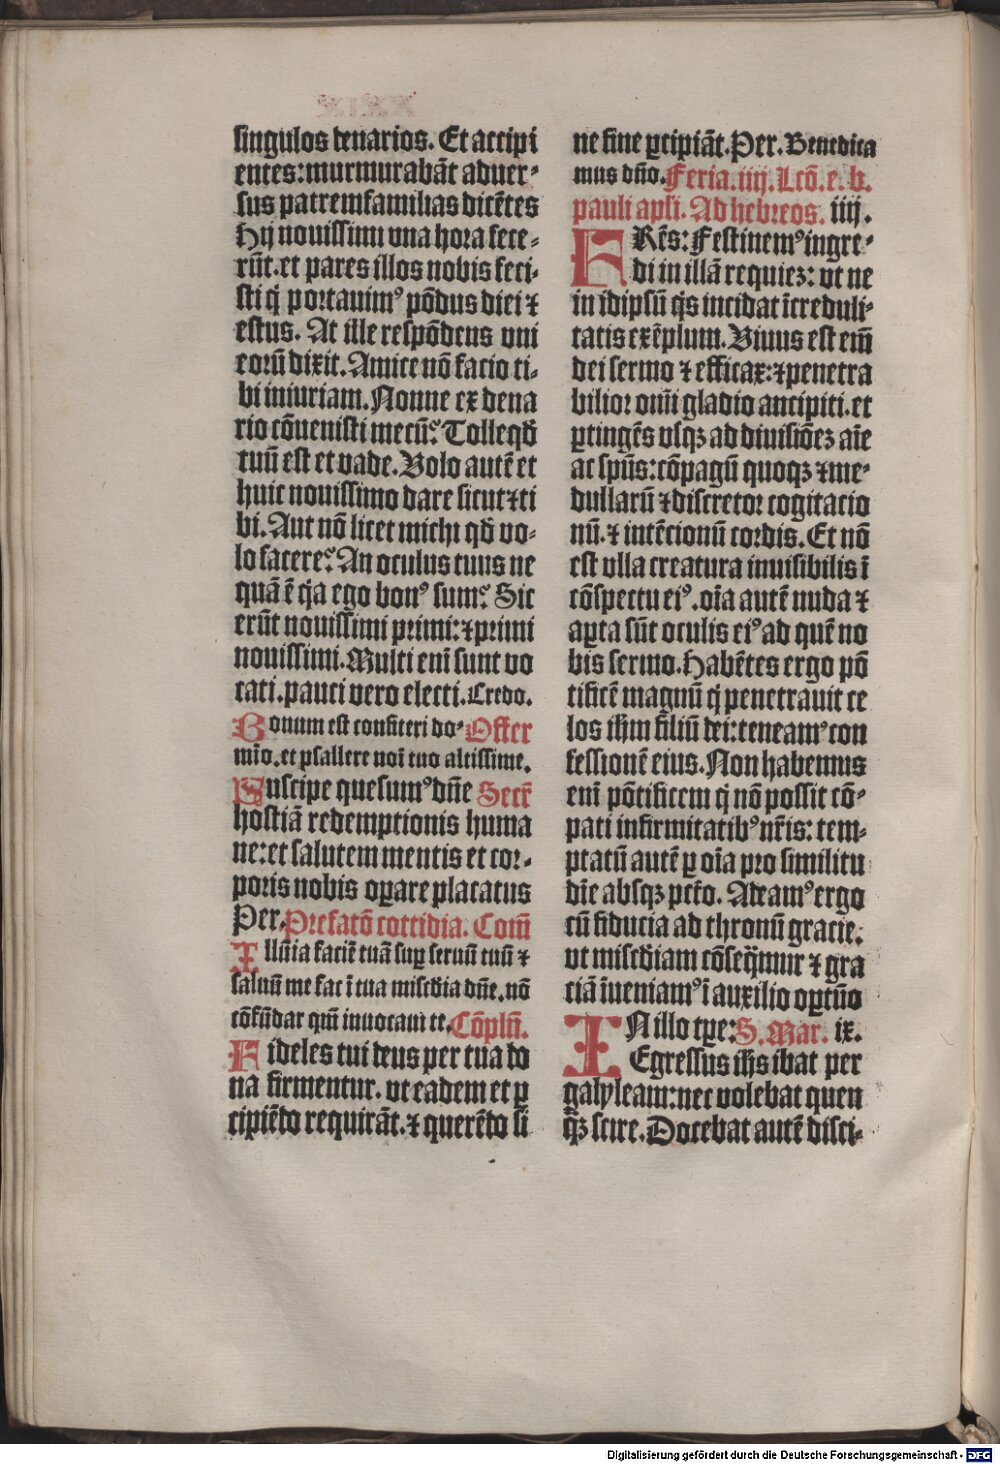 singulos denarios. Et accipi
entes: murmurabāt aduer-
sus patremfamilias dicētes
Hij nouissimi vna hora fece-
rūt. et pares illos nobis feci-
sti q̄ portauim⁹ pōdus diei ⁊
estus. At ille respōdens vni
eorū dixit. Amice nō facio ti-
bi iniuriam. Nonne ex dena
rio cōuenisti mecū? Tolle qd̄
tuū est et vade. Volo autē et
huic nouissimo dare sicut ⁊ ti
bi. Aut nō licet michi qd̄ vo-
lo facere? An oculus tuus ne
quā ē q̄a ego bon⁹ sum? Sic
erūt nouissimi primi: ⁊ primi
nouissimi. Multi enī sunt vo
cati. pauci vero electi. Credo.
Bonum est confiteri do- Offer
mīo. et psallere noī tuo altissime.
Suscipe quesum⁹ dn̄e Secr̄
hostiā redemptionis huma
ne: et salutem mentis et cor-
poris nobis oꝑare placatus
Per. Prefatō cottidia. Com̄
Illūīa faciē tuā suꝑ seruū tuū ⁊
saluū me fac ī tua misc̄dia dn̄e. nō
cōfūdar qm̄ inuocaui te. Cōpln̄.
Fideles tui deus per tua do
na firmentur. vt eadem et ꝑ
cipiēdo requirāt. ⁊ querēdo si
ne fine ꝑcipiāt. Per. Benedica
mus dn̄o. Feria. iiij. Lcō. e. b.
pauli apl̄i. Ad hebreos. iiij.
FRēs: Festinem⁹ ingre-
di in illā requiez: vt ne
in idipsū q̄s incidat īcreduli-
tatis exēplum. Viuus est em̄
dei sermo ⁊ efficax: ⁊ penetra
bilior om̄i gladio ancipiti. et
ꝑtingēs vsqꝫ ad diuisiōez aīe
ac spūs: cōpagū quoqꝫ ⁊ me-
dullarū ⁊ discretor cogitacio
nū. ⁊ intēcionū cordis. Et nō
est vlla creatura inuisibilis ī
cōspectu ei⁹. oīa autē nuda ⁊
aꝑta sūt oculis ei⁹ ad quē no
bis sermo. Habētes ergo pō
tificē magnū q̄ penetrauit ce
los ih̄m filiū dei: teneam⁹ con
fessionē eius. Non habemus
enī pōtificem q̄ nō possit cō-
pati infirmitatib⁹ nr̄is: tem-
ptatū autē ꝑ oīa pro similitu
dīe absqꝫ pctō. Adeam⁹ ergo
cū fiducia ad thronū gracie.
vt misc̄diam cōseq̄mur ⁊ gra
ciā īueniam⁹ ī auxilio oꝑtūo
IN illo tꝑe: S. Mar. ix.
Egressus ih̄s ibat per
galyleam: nec volebat quen
q̄ꝫ scire. Docebat autē disci-
Digitalisierung gefördert durch die Deutsche Forschungsgemeinschaft - DFG